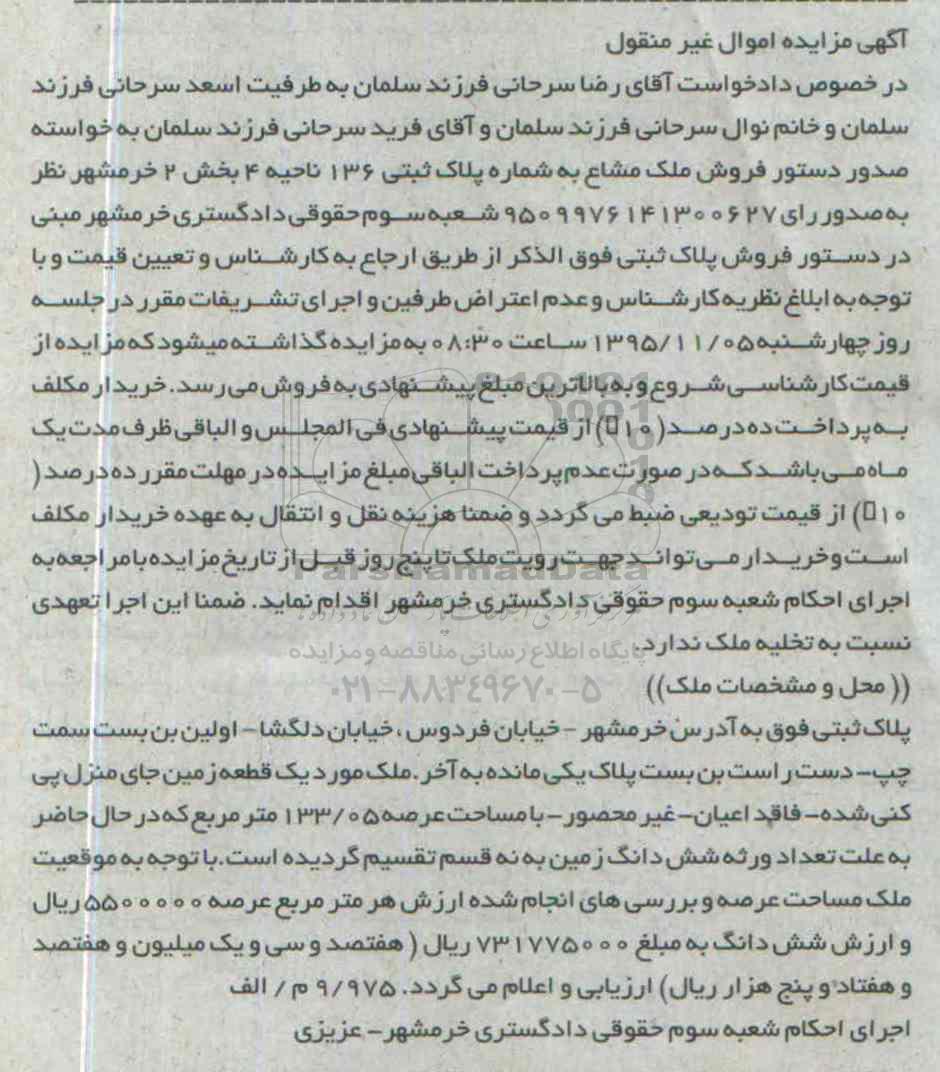 آگهی مزایده اموال غیر منقول
در خصوص دادخواست آقای رضا سرحانی فرزند سلمان به طرفیت اسعد سرحانی فرزند
سلمان و خانم نوال سرحانی فرزند سلمان و آقای فرید سرحانی فرزند سلمان به خواسته
صدور دستور فروش ملک مشاع به شماره پلاک ثبتی ۱۳۶ ناحیه ۴ بخش ۲ خرمشهر نظر
به صدور رای ۹۵۰۹۹۷۶۱۴۱۳۰۰۶۲۷ شعبه سوم حقوقی دادگستری خرمشهر مبنی
در دستور فروش پلاک ثبتی فوق الذکر از طریق ارجاع به کارشناس و تعیین قیمت و با
توجه به ابلاغ نظریه کارشناس و عدم اعتراض طرفین و اجرای تشریفات مقرر در جلسه
روز چهارشنبه ۱۳۹۵/۱۱/۰۵ ساعت ۰۸:۳۰ به مزایده گذاشته میشود که مزایده از
قیمت کارشناسی شروع و به بالاترین مبلغ پیشنهادی به فروش می رسد. خریدار مکلف
به پرداخت ده درصد (۱۰▯) از قیمت پیشنهادی فی المجلس و الباقی ظرف مدت یک
ماه می باشد که در صورت عدم پرداخت الباقی مبلغ مزایده در مهلت مقرر ده درصد (
۱۰▯) از قیمت تودیعی ضبط می گردد و ضمنا هزینه نقل و انتقال به عهده خریدار مکلف
است و خریدار می تواند جهت رویت ملک تا پنج روز قبل از تاریخ مزایده با مراجعه به
اجرای احکام شعبه سوم حقوقی دادگستری خرمشهر اقدام نماید. ضمنا این اجرا تعهدی
نسبت به تخلیه ملک ندارد.
ParsNamadData
پایگاه اطلاع رسانی مناقصه و مزایده
۰۲۱-۸۸۳۴۹۶۷۰-۵
(( محل و مشخصات ملک))
پلاک ثبتی فوق به آدرس خرمشهر - خیابان فردوس ، خیابان دلگشا - اولین بن بست سمت
چپ- دست راست بن بست پلاک یکی مانده به آخر .ملک مورد یک قطعه زمین جای منزل پی
کنی شده- فاقد اعیان-غیر محصور- با مساحت عرصه ۱۳۳/۰۵ متر مربع که در حال حاضر
به علت تعداد ورثه شش دانگ زمین به نه قسم تقسیم گردیده است.با توجه به موقعیت
ملک مساحت عرصه و بررسی های انجام شده ارزش هر متر مربع عرصه ۵۵۰۰۰۰۰ ریال
و ارزش شش دانگ به مبلغ ۷۳۱۷۷۵۰۰۰ ریال ( هفتصد و سی و یک میلیون و هفتصد
و هفتاد و پنج هزار ریال) ارزیابی و اعلام می گردد. ۹/۹۷۵ م / الف
اجرای احکام شعبه سوم حقوقی دادگستری خرمشهر- عزیزی